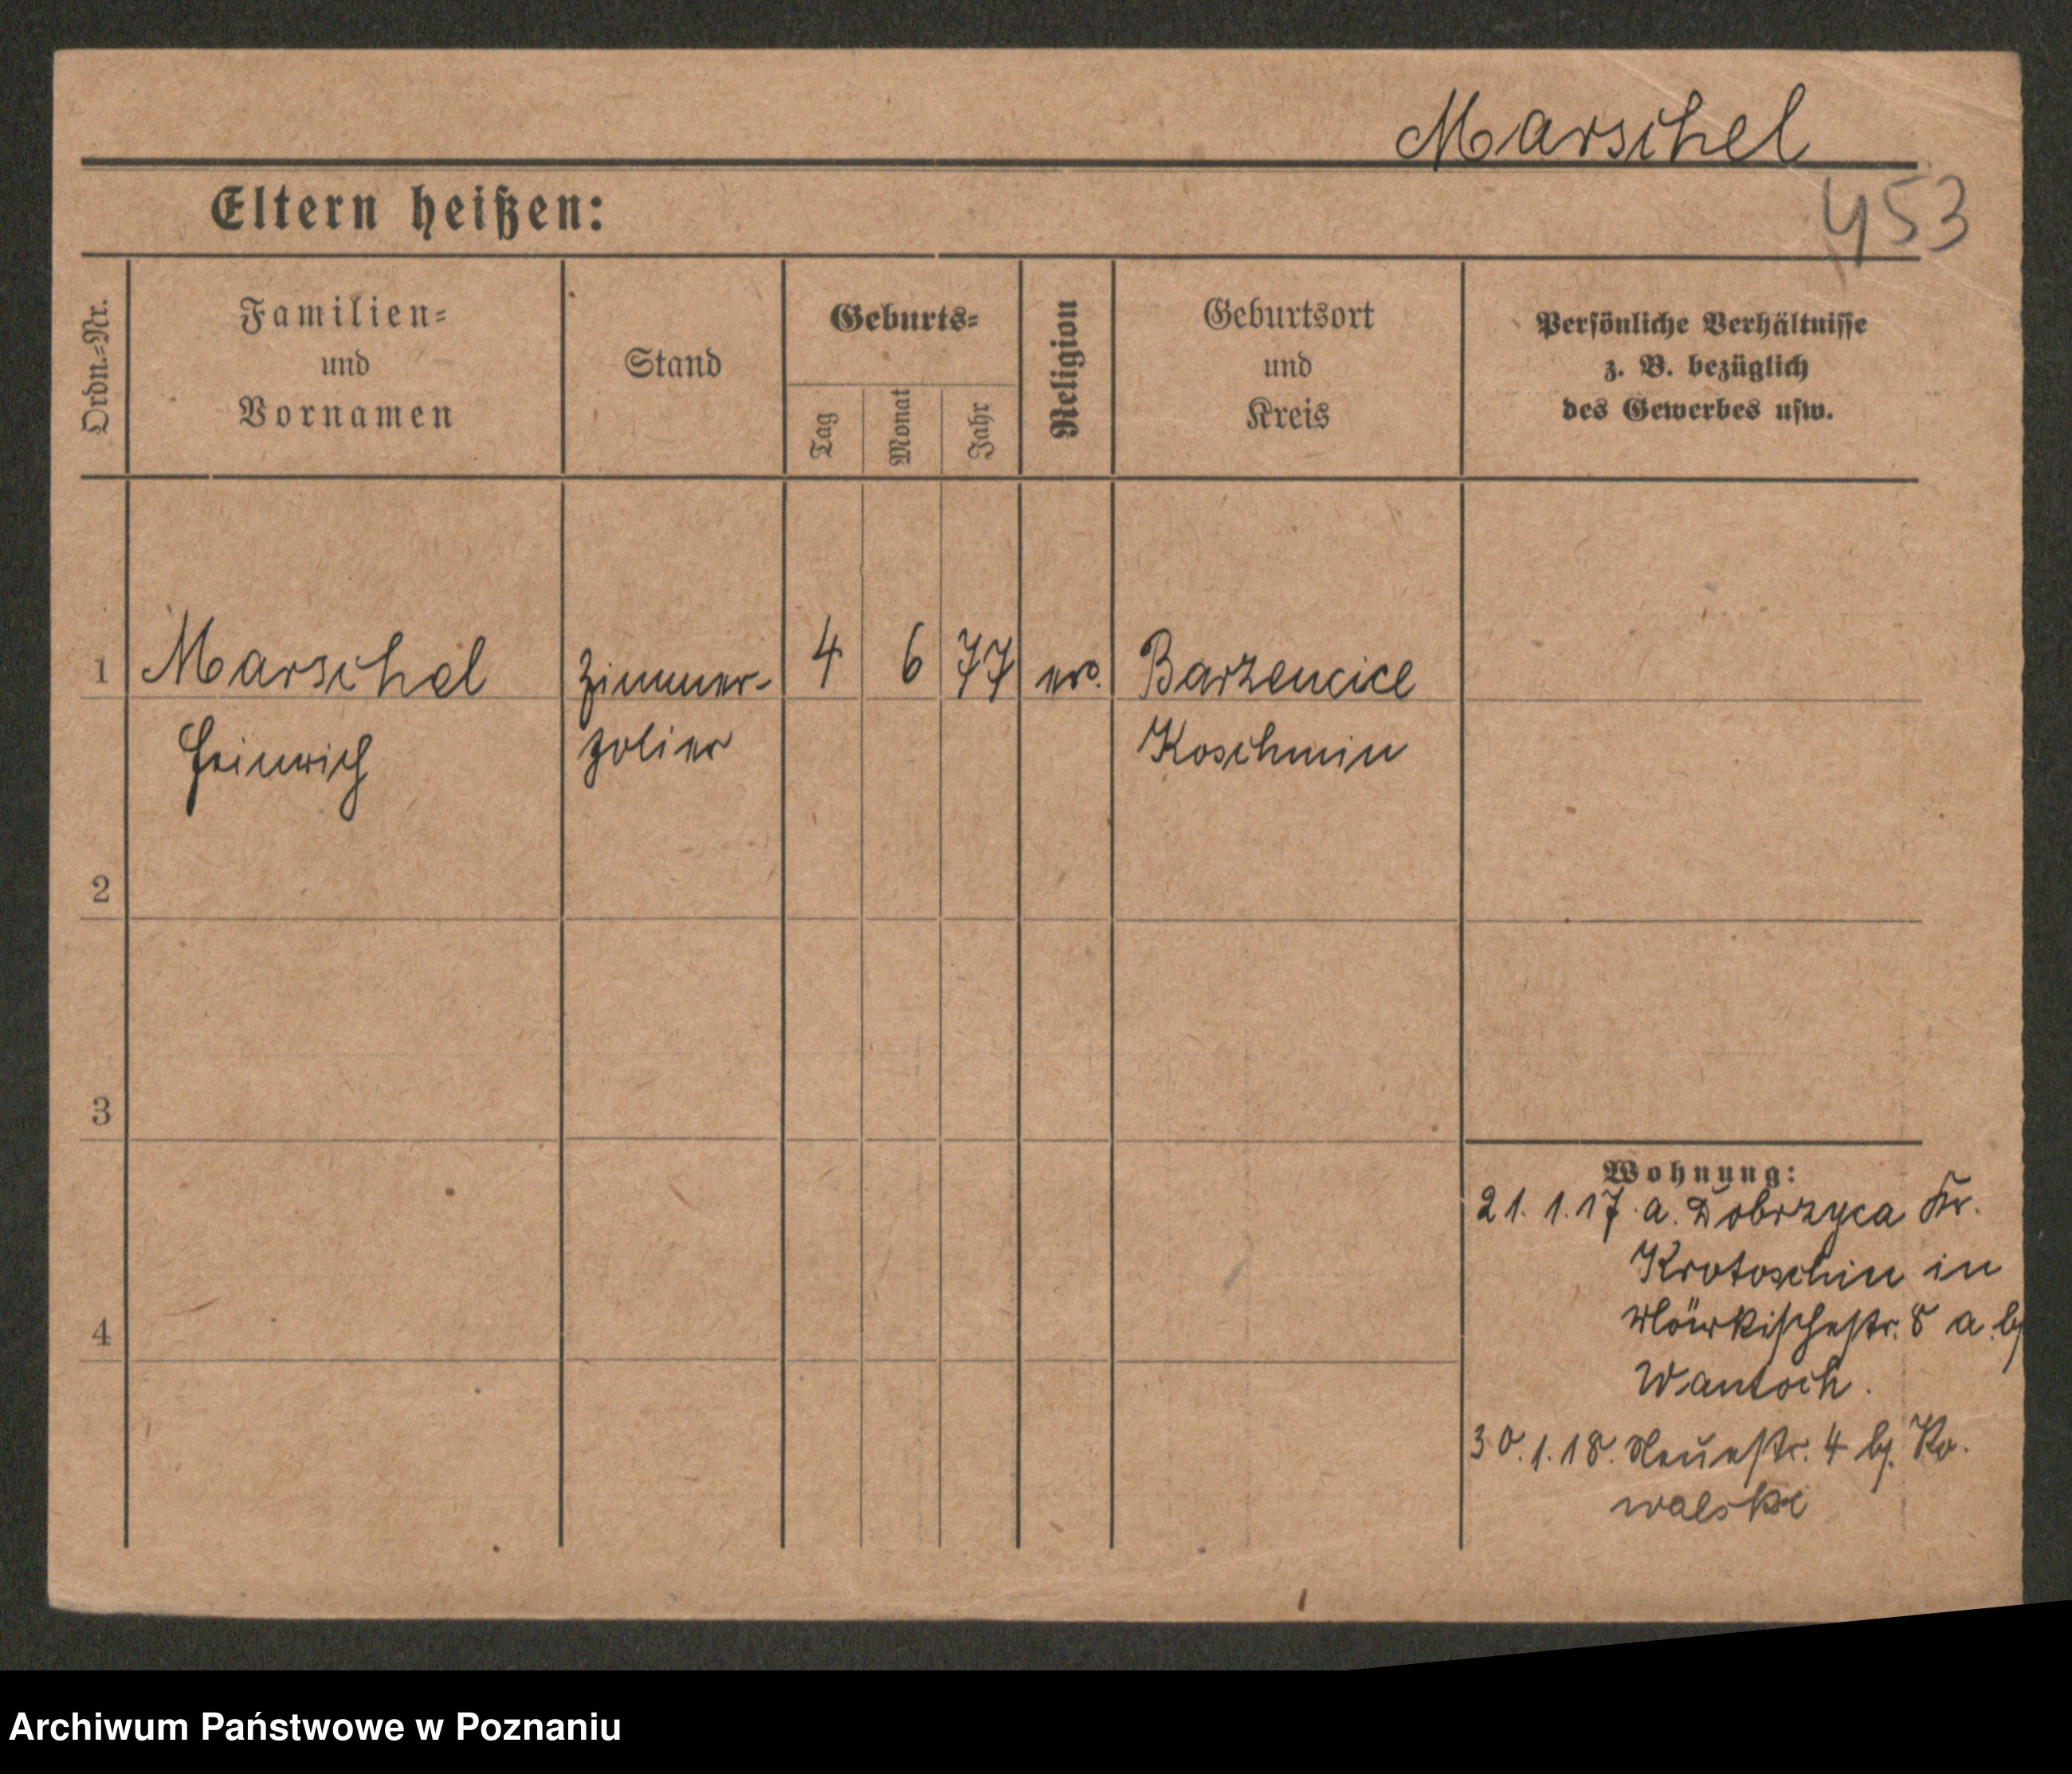 Marschel
453
Eltern heißen:
Ordn.=Nr.
Familien=
und
Vornamen
Stand
Geburts=
Tag
Monat
Jahr
Religion
Geburtsort
und
Kreis
Persönliche Verhältnisse
z. B. bezüglich
des Gewerbes usw.
1 Marschel Zimmer- 4 6 77 ev. Barzencice
Heinrich polier Koschmin
2
3
4
Wohnung:
21.1.17. a. Dobrzyca Kr.
Krotoschin in
Märkischestr. 8 a. bj
Wantoch.
30.1.18. Neuestr. 4 bj. Ko-
walski
Archiwum Państwowe w Poznaniu